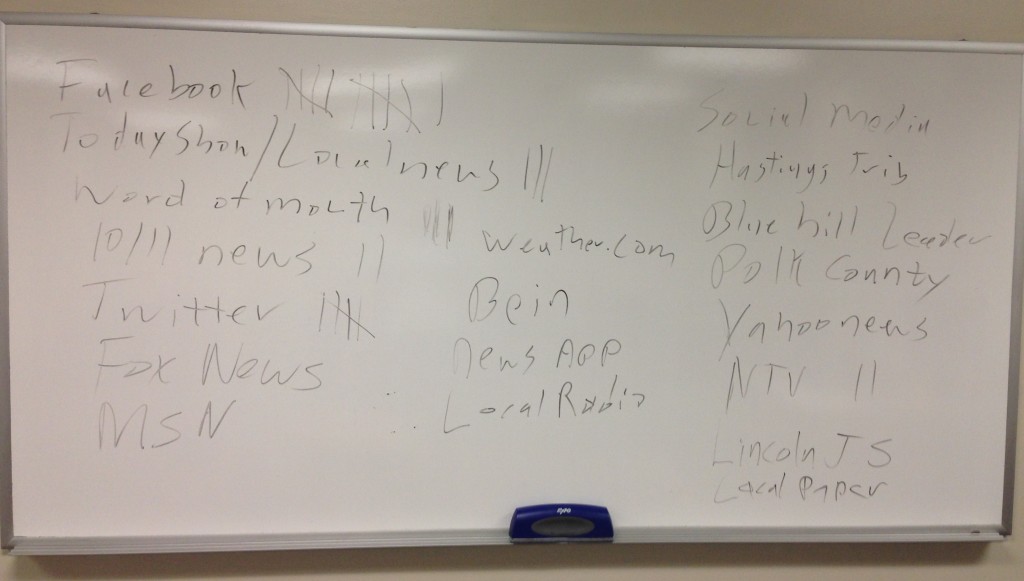 Facebook
Today Show/Local news |||
Word of mouth
10/11 news ||
Twitter
Fox News
MSN
weather.com
Bein
News APP
Local Radio
EXPO
Social media
Hastings Trib
Blue hill Leader
Polk County
Yahoo news
NTV ||
Lincoln JS
Local Paper